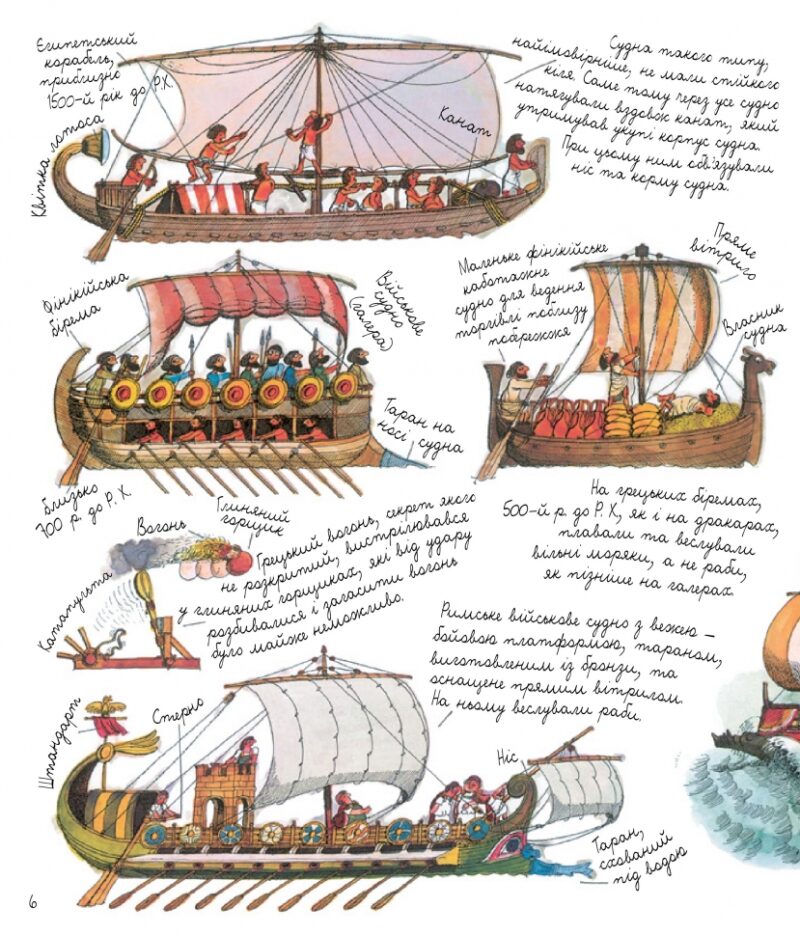 Єгипетський
корабель,
приблизно
1500-й рік до Р.Х.
Судна такого типу,
найімовірніше, не мали стійкого
кіля. Саме тому через усе судно
натягували вздовж канат, який
утримував укупі корпус судна.
При цьому ним обв'язували
ніс та корму судна.
Канат
Квітка лотоса
Фінікійська
бірема
Військове
судно
(галера)
Маленьке фінікійське
каботажне
судно для ведення
торгівлі поблизу
побережжя
Пряме
вітрило
Власник
судна
Таран на
носі судна
Близько
700 р. до Р. Х.
Вогонь
Глиняний
горщик
Катапульта
Грецький вогонь, секрет якого
не розкритий, вистрілювався
у глиняних горщиках, які від удару
розбивалися і загасити вогонь
було майже неможливо.
На грецьких біремах,
500-й р. до Р. Х., як і на дракарах,
плавали та веслували
вільні моряки, а не раби,
як пізніше на галерах.
Римське військове судно з вежею –
бойовою платформою, тараном,
виготовленим із бронзи, та
оснащене прямим вітрилом.
На ньому веслували раби.
Штандарт
Стерно
Ніс
Таран,
схований
під водою
6